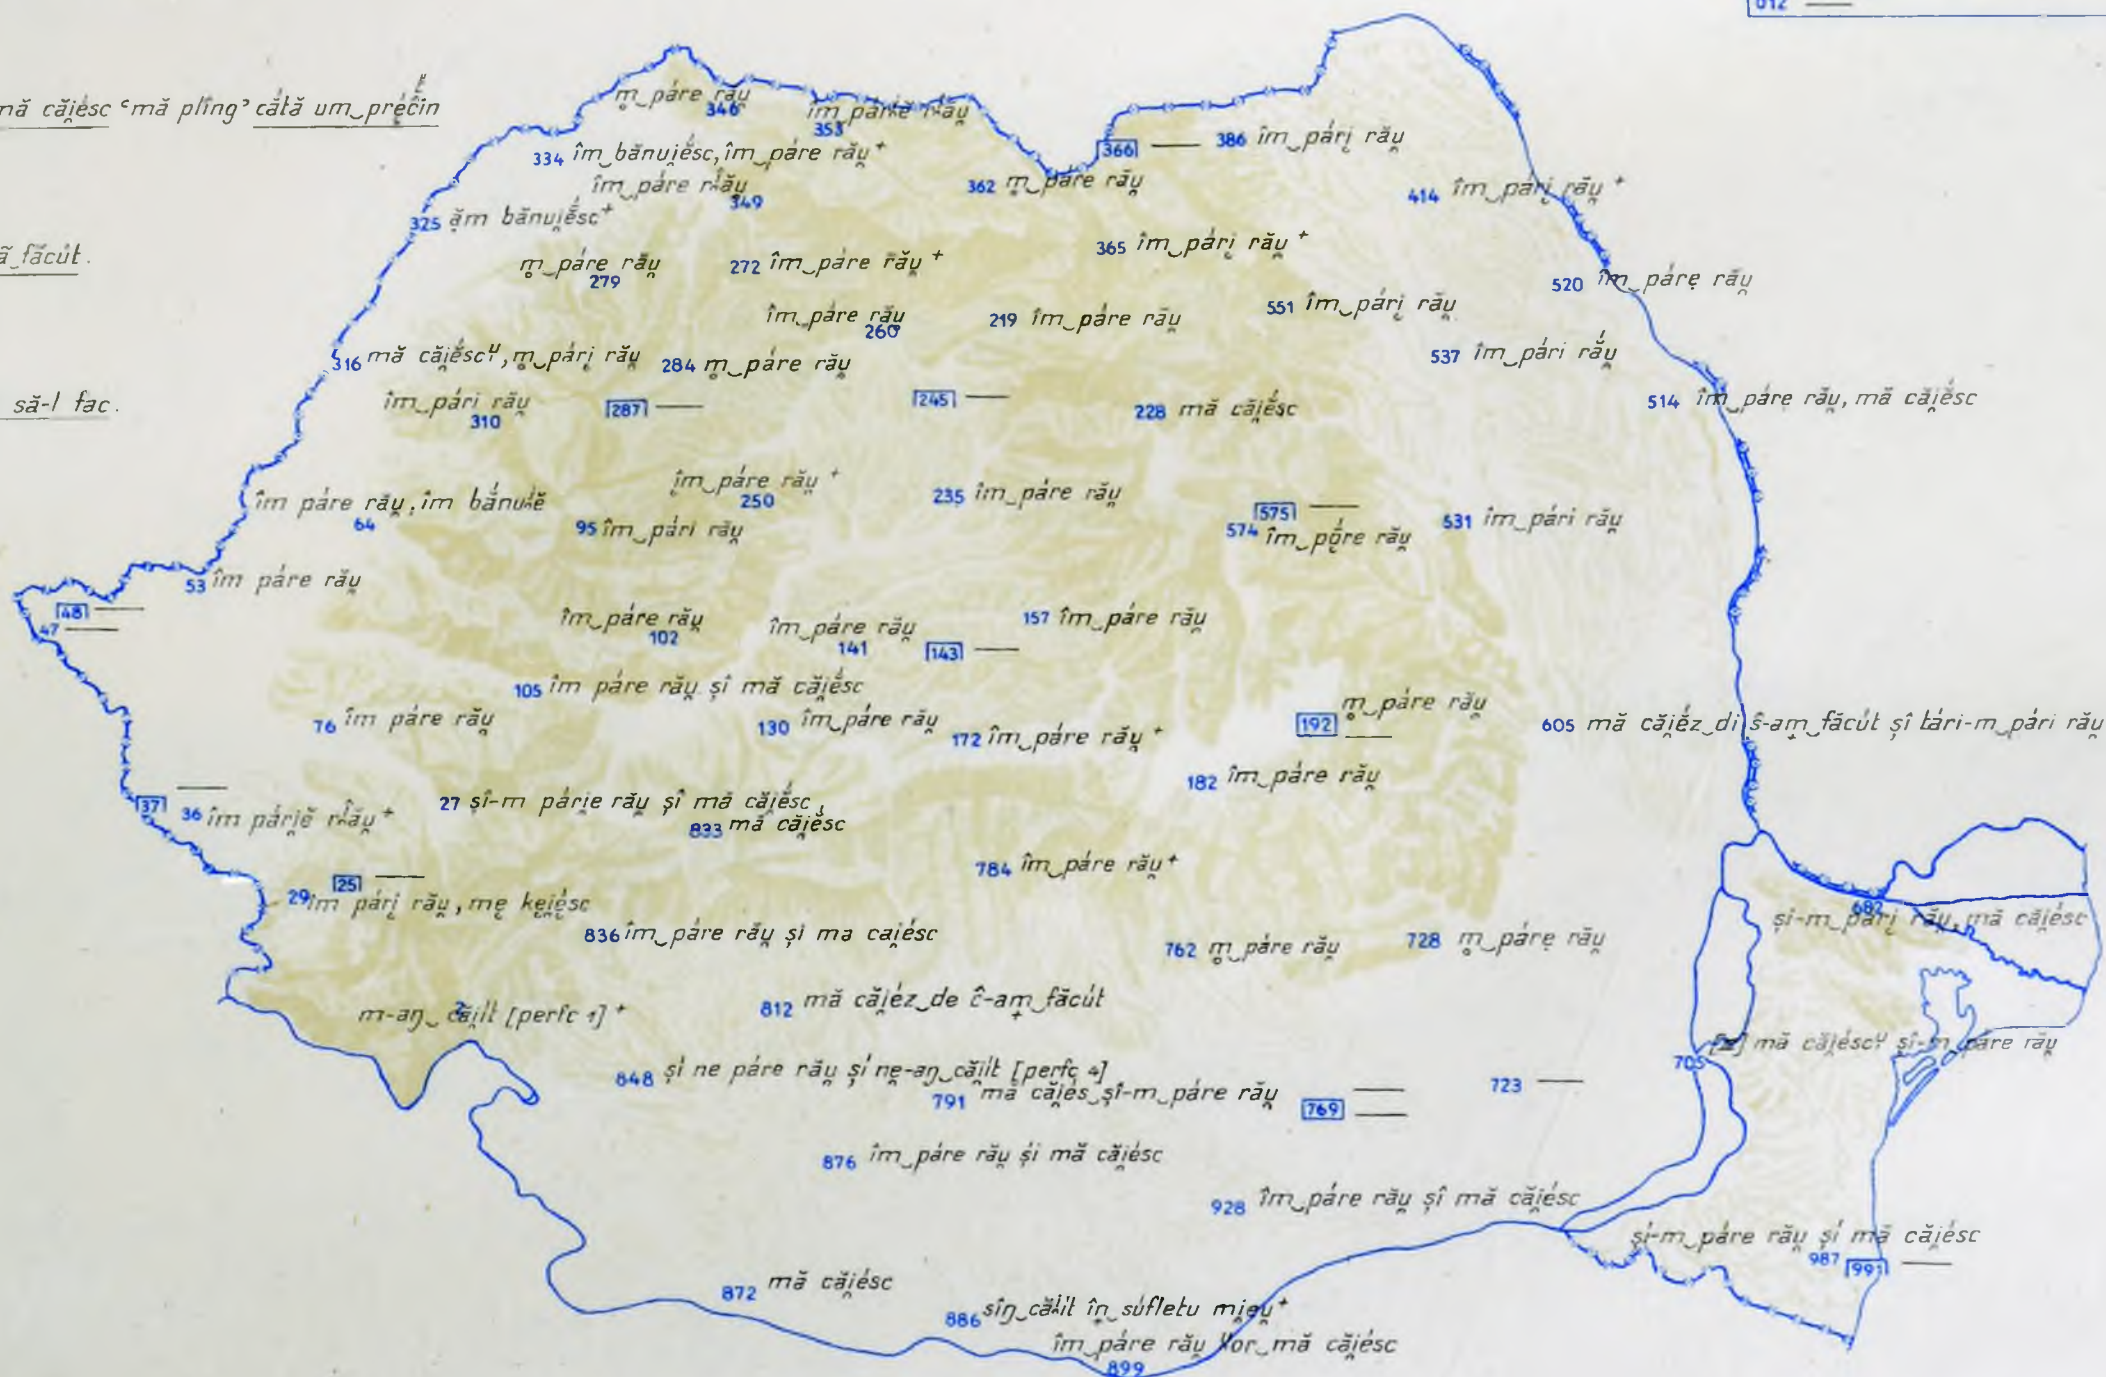 012 —
mă căi̯ésc ‘mă plîng’ cátă um‿préčin
ă‿făcút.
să-l fac.
m̥‿páre rău̯
346
353
334 îm‿bănui̯ésc, îm‿páre rău̯ +
îm‿páre
349
325 ăm bănui̯ésc +
362 m̥‿páre rău̯
366 —
386 îm‿pári̯ rău̯
414 îm‿pári̯ rău̯ +
365 îm‿pári̯ rău̯ +
m̥‿páre rău̯
279
272 îm‿páre rău̯ +
îm‿páre rău̯
260
219 îm‿páre rău̯
551 îm‿pári̯ rău̯
520 îm‿páre rău̯
537 îm‿pári rău̯
316 mă căi̯ésc, m̥‿pári̯ rău̯
284 m̥‿páre rău̯
îm‿pári rău̯
310
287 —
245 —
228 mă căi̯ésc
514 îm‿páre rău̯, mă căi̯ésc
îm páre rău̯, îm
64
îm‿páre rău̯ +
250
95 îm‿pári rău̯
235 îm‿páre rău̯
575 —
574 îm‿páre rău̯
531 îm‿pári rău̯
53 îm páre rău̯
48 —
47 —
îm‿páre rău̯
102
îm‿páre rău̯
141
143 —
157 îm‿páre rău̯
105 îm páre rău̯ și mă căi̯ésc
76 îm páre rău̯
130 îm‿páre rău̯
172 îm‿páre rău̯ +
m̥‿páre rău̯
192 —
182 îm‿páre rău̯
605 mă căi̯éz‿di ŝ-am‿făcút șî tári-m‿pári rău̯
37 —
36 îm
27 șî-m párie rău̯ șî mă căi̯ésc,
833 mă căi̯ésc
784 îm‿páre rău̯ +
25 —
29 îm pári̯ rău̯,
836 îm‿páre rău̯ și ma cai̯ésc
762 m̥‿páre rău̯
728 m̥‿páre rău̯
682
și-m‿pári̯ rău̯, mă căi̯ésc
2
m-aŋ‿căi̯ít [perfc 1] +
812 mă căi̯éz‿de ĉ-am‿făcút
705 mă căi̯ésc șî-m‿páre rău̯
848 și ne páre rău̯ și ne-aŋ‿căi̯ít [perfc 4]
791 mă căi̯és‿șî-m‿páre rău̯
769 —
723 —
876 îm‿páre rău̯ și mă căi̯ésc
928 îm‿páre rău̯ șî mă căi̯ésc
și-m‿páre rău̯ și mă căi̯ésc
987 991 —
872 mă căi̯ésc
886 sîŋ‿căít în‿súfletu mi̯eu̯ +
îm‿páre rău̯ or‿mă căi̯ésc
899